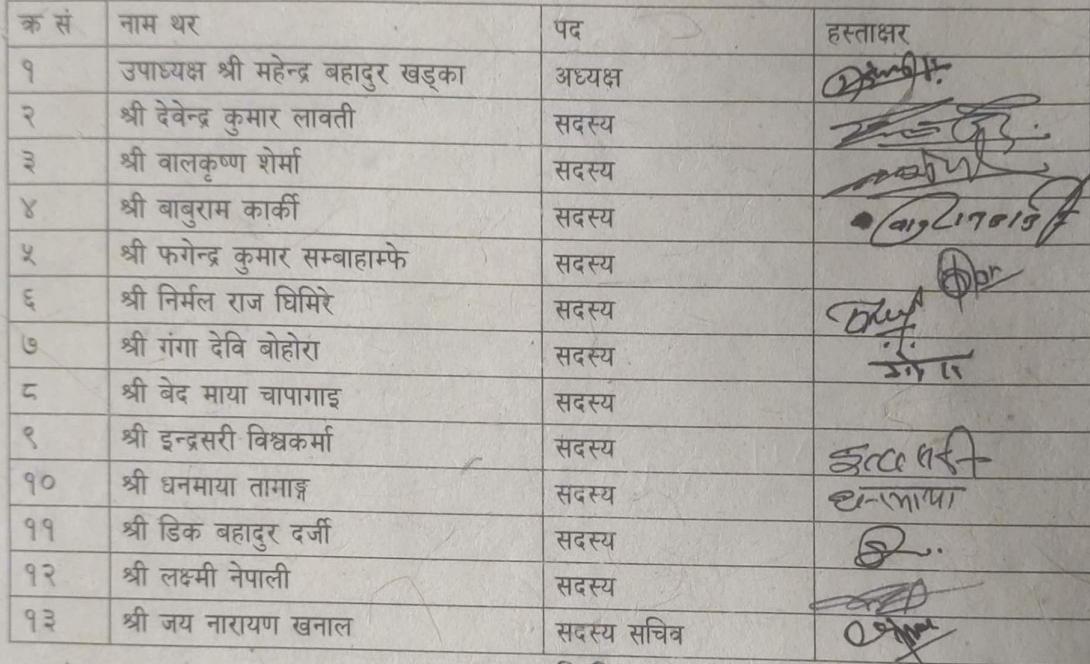 क्र सं नाम थर पद हस्ताक्षर
१ उपाध्यक्ष श्री महेन्द्र बहादुर खड्का अध्यक्ष
२ श्री देवेन्द्र कुमार लावती सदस्य
३ श्री वालकृष्ण शेर्मा सदस्य
४ श्री बाबुराम कार्की सदस्य
५ श्री फगेन्द्र कुमार सम्बाहाम्फे सदस्य
६ श्री निर्मल राज घिमिरे सदस्य
७ श्री गंगा देवि बोहोरा सदस्य
८ श्री बेद माया चापागाइ सदस्य
९ श्री इन्द्रसरी विश्वकर्मा सदस्य
१० श्री धनमाया तामाङ्ग सदस्य धनमाया
११ श्री डिक बहादुर दर्जी सदस्य
१२ श्री लक्ष्मी नेपाली सदस्य
१३ श्री जय नारायण खनाल सदस्य सचिव